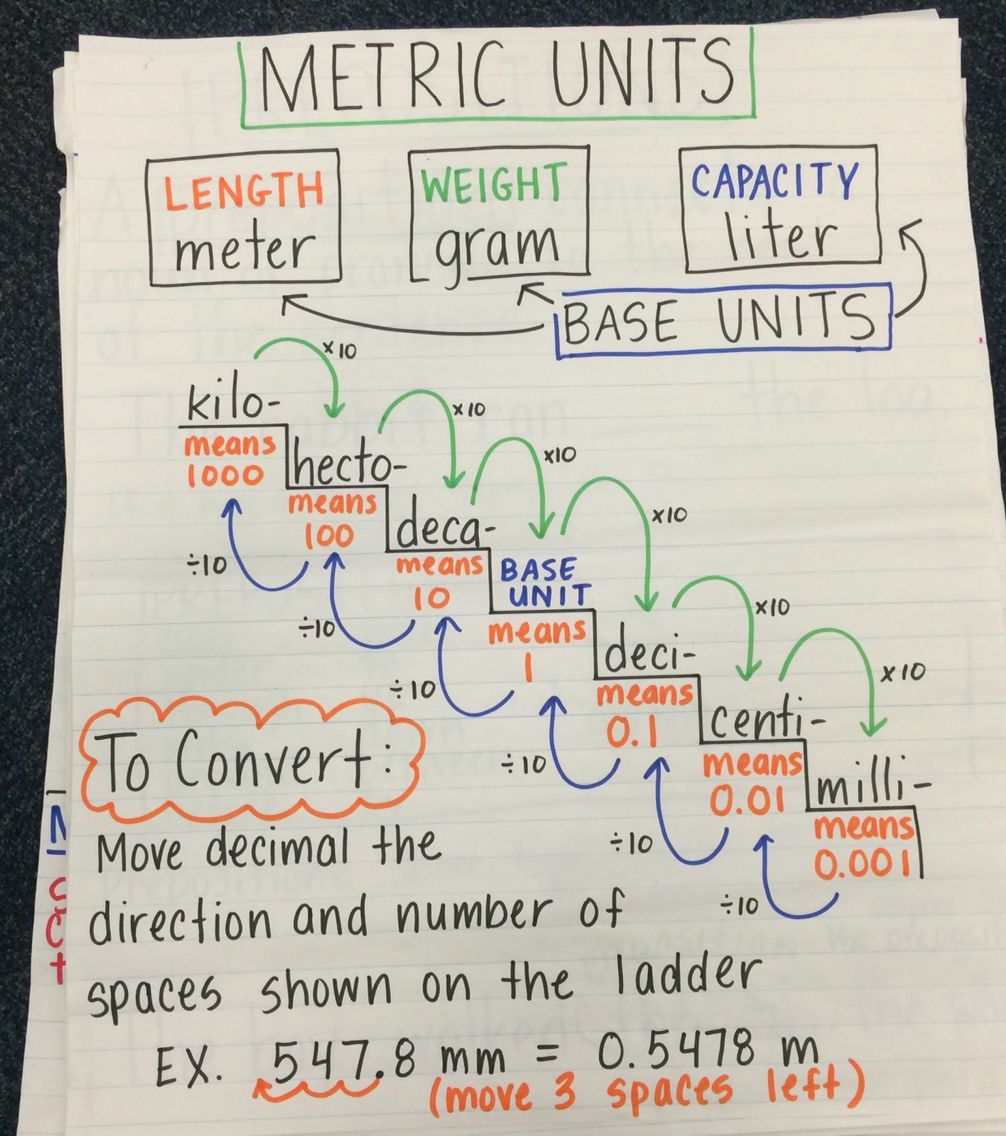 METRIC UNITS
LENGTH
meter
WEIGHT
gram
CAPACITY
liter
BASE UNITS
kilo-
means
1000
hecto-
means
100
deca-
means
10
BASE
UNIT
means
1
deci-
means
0.1
centi-
means
0.01
milli-
means
0.001
x10
x10
x10
x10
x10
x10
÷10
÷10
÷10
÷10
÷10
÷10
To Convert:
Move decimal the
direction and number of
spaces shown on the ladder
EX. 547.8 mm = 0.5478 m
(move 3 spaces left)